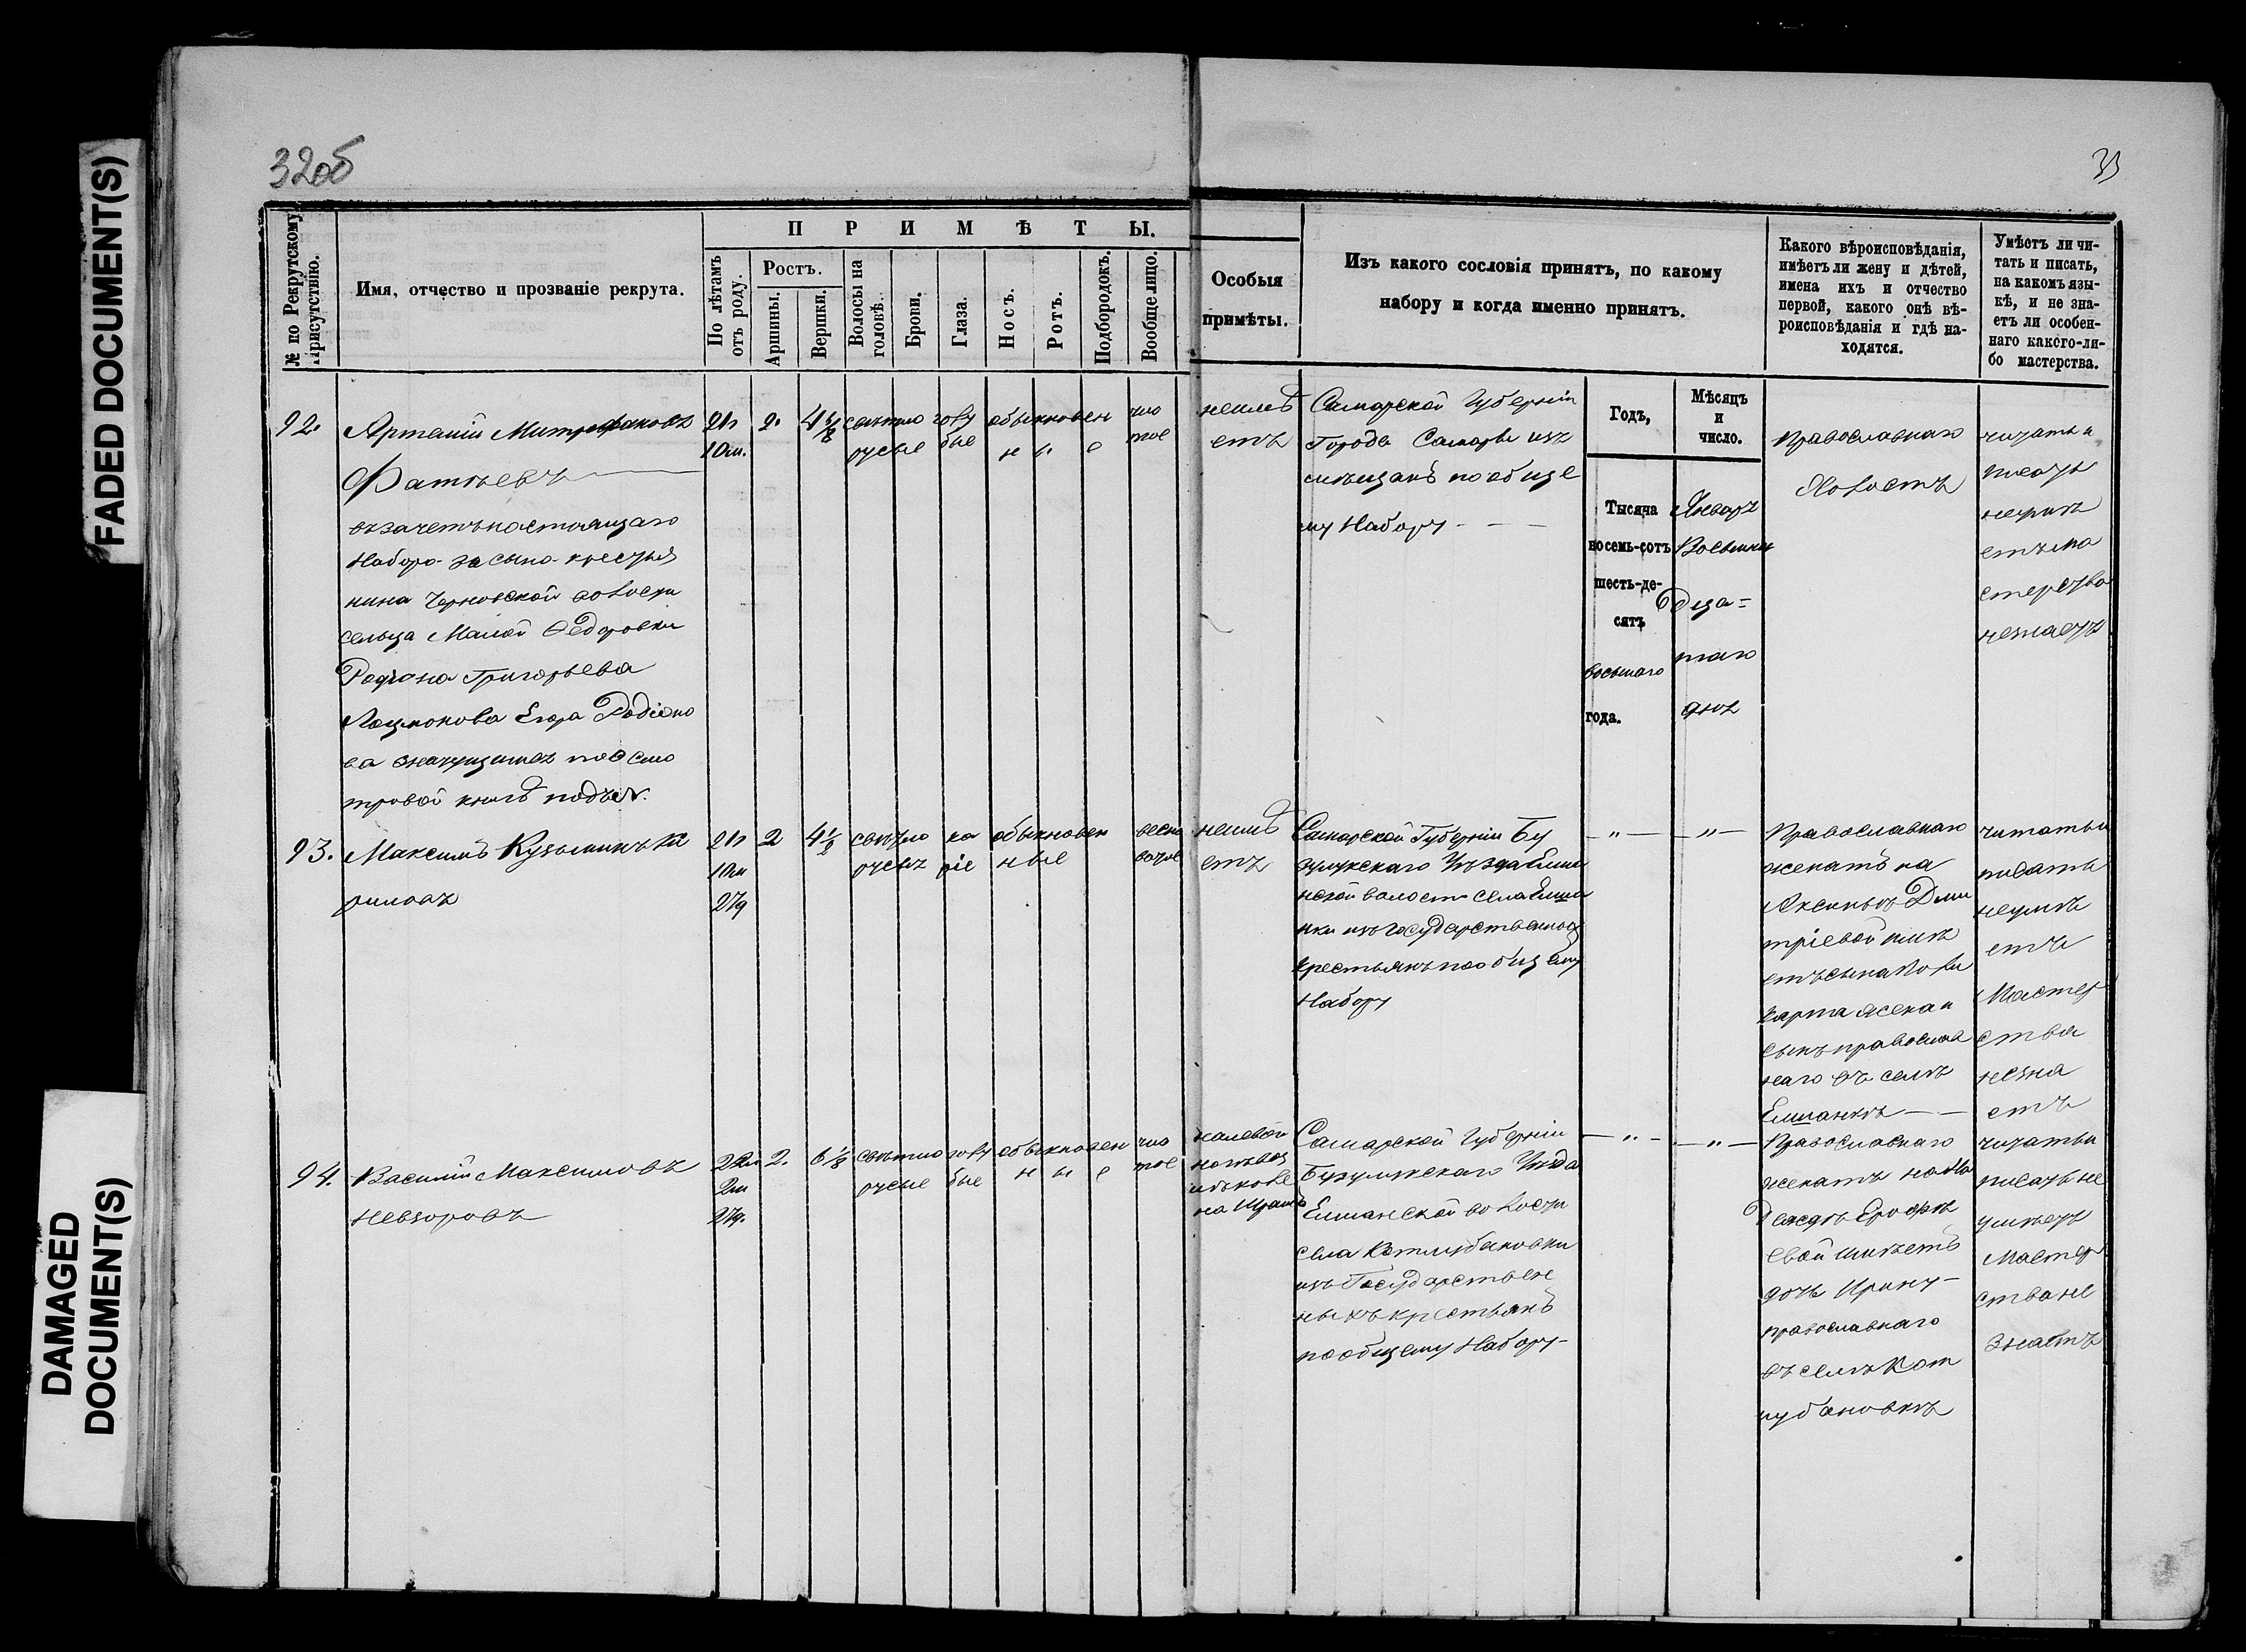 FADED DOCUMENT(S)
DAMAGED
DOCUMENT(S)
32об
33
№ по Рекрутскому
Присутствію.
Имя, отчество и прозваніе рекрута.
ПРИМѢТЫ.
По лѣтамъ
отъ роду.
Ростъ.
Аршины.
Вершки.
Волосы на
головѣ.
Брови.
Глаза.
Носъ.
Ротъ.
Подбородокъ.
Вообще лицо.
Особыя
примѣты.
Изъ какого сословія принятъ, по какому
набору и когда именно принятъ.
Какого вѣроисповѣданія,
имѣетъ ли жену и дѣтей,
имена ихъ и отчество
первой, какого онѣ вѣ-
роисповѣданія и гдѣ на-
ходятся.
Умѣетъ ли чи-
тать и писать,
на какомъ язы-
кѣ, и не зна-
етъ ли особен-
наго какого-ли-
бо мастерства.
92.
Артемій Митрофановъ
Фатѣевъ
въ зачетъ настоящаго
набора за сына крестья
нина Черновской волости
сельца Малой Федоровки
Родіона Григорьева
Егора Родіоно
ва значущимся по осмо
тровой книгѣ подъ №.
21л
10м.
2.
4 1/8
свѣтло
русые
голу
бые
обыкновен
н ы е
чис
тое
неимѣ
етъ
Самарской Губерніи
Города Самары изъ
мѣщанъ по обще
му набору
Годъ,
Мѣсяцъ
и
число.
Тысяча
восемь-сотъ
шесть-де-
сятъ
восьмаго
года.
Январь
Восемна
дца=
таго
дня
Православнаго
Холостъ
читать и
писать
неумѣ
етъ ма
стерства
незнаетъ
93.
Максимъ Кузьминъ Ки
риловъ
21л
10м
27д
2
4 1/2
свѣтло
русые
ка
ріе
обыкновен
ные
весно
вачое
неимѣ
етъ
Самарской Губерніи Бу
зулукскаго Уѣзда Елша
нской волости села Елша
нки изъ государственныхъ
крестьянъ по общему
набору
— " —
— " —
Православнаго
женатъ на
Аксиньѣ Дми
тріевой имѣ
етъ сына Поли
карпа жена и
сынъ православ
наго въ селѣ
Елшанкѣ — —
читать и
писать
неумѣ
етъ
Мастер
ства
незна
етъ
94.
Василій Максимовъ
Невзоровъ
22л
2м
27д.
2.
6 1/8
свѣтло
русые
голу
бые
обыкновен
н ы е
чис
тое
на лѣвой
Самарской Губерніи
Бузулукскаго Уѣзда
Елшанской волости
села Котлубановки
изъ Государствен
ныхъ крестьянъ
по общему набору
— " —
— " —
Православнаго
женатъ на На
деждѣ Ерофѣ
евой имѣетъ
дочь Ирину
православнаго
въ селѣ Кот
лубановкѣ
читать и
писать не
умѣетъ
Мастер
ства не
знаетъ